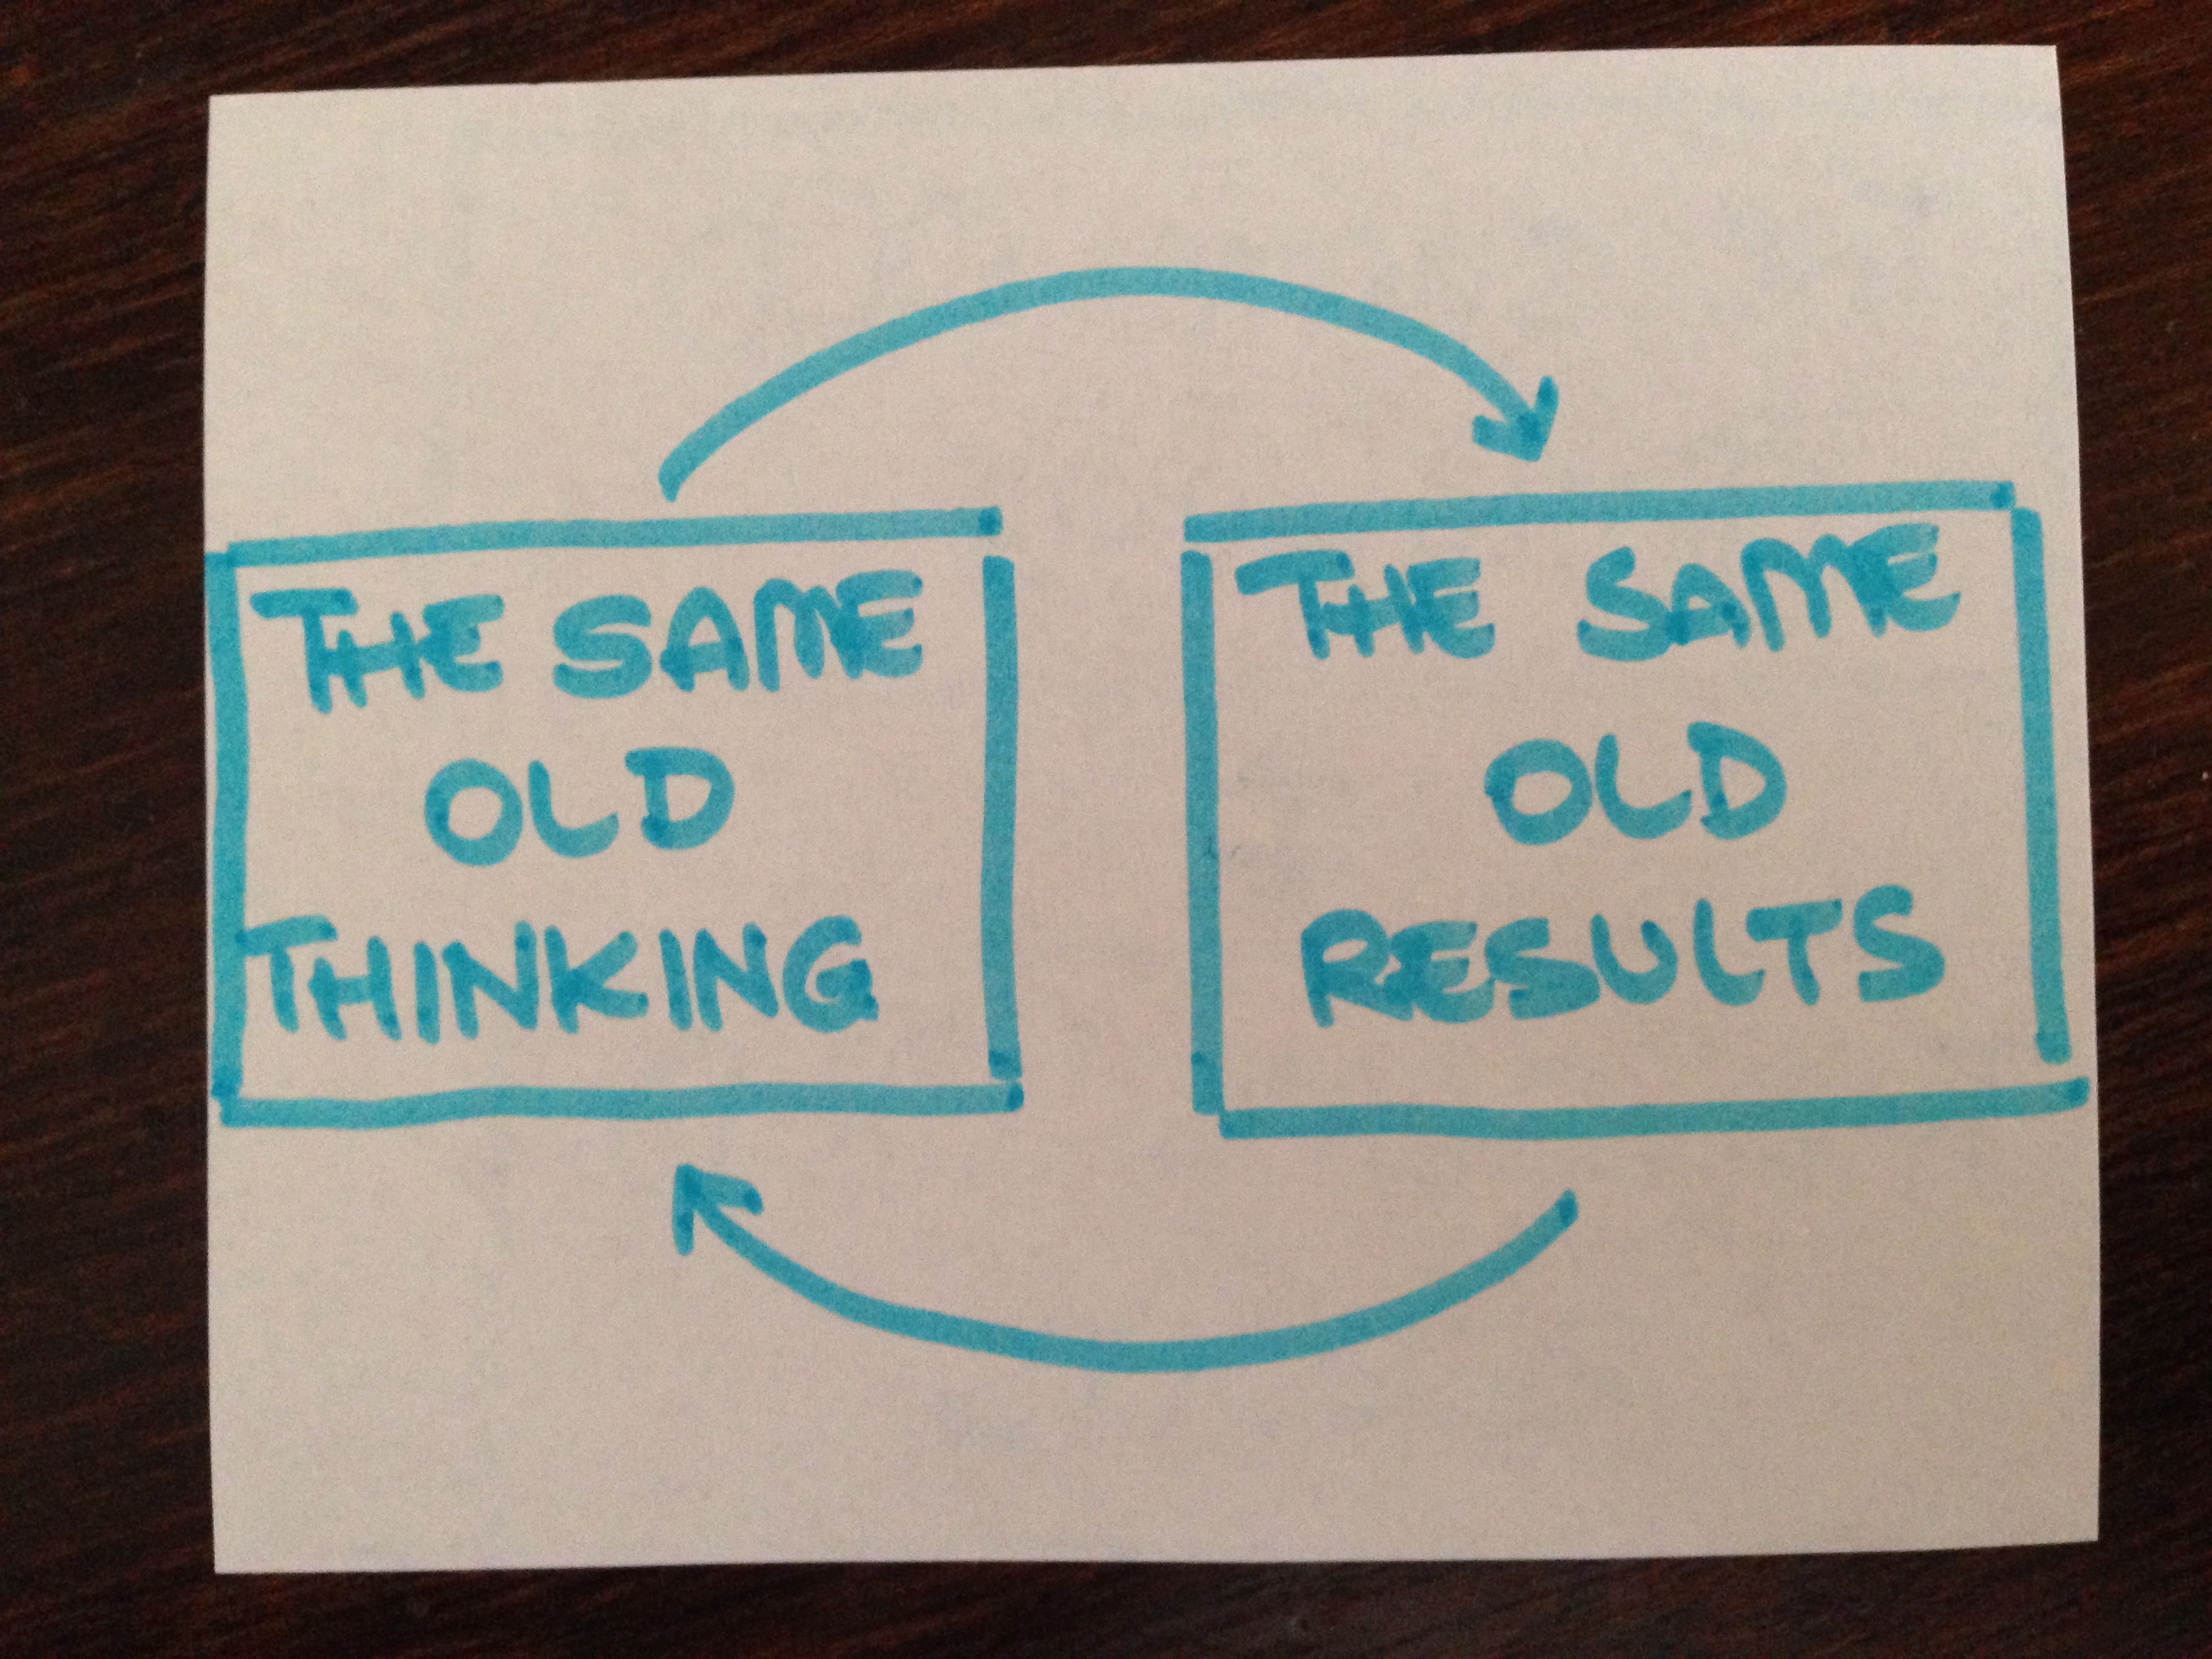 THE SAME
OLD
THINKING
THE SAME
OLD
RESULTS